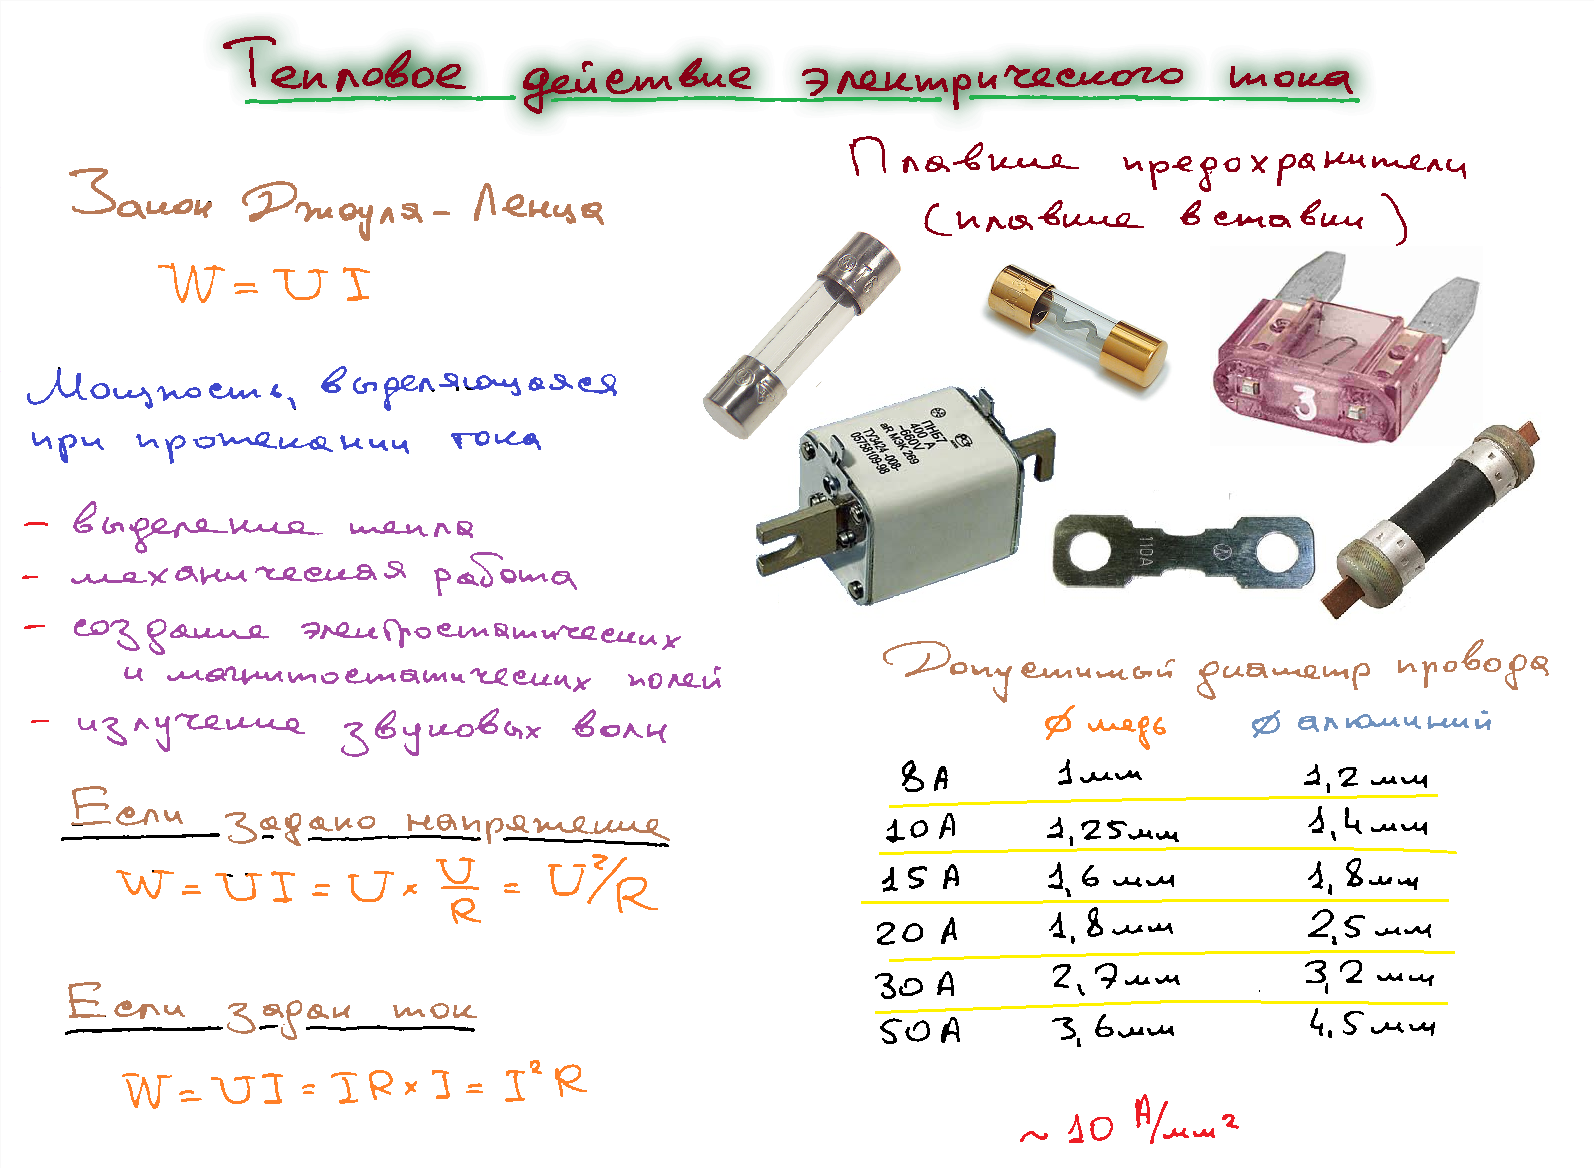 Тепловое действие электрического тока
Закон Джоуля-Ленца
W = U I
Мощность, выделяющаяся
при протекании тока
- выделение тепла
- механическая работа
- создание электростатических
и магнитостатических полей
- излучение звуковых волн
Если задано напряжение
W = U I = U × U/R = U²/R
Если задан ток
W = U I = I R × I = I² R
Плавкие предохранители
(плавкие вставки)
3
ПНБ7
400 А
~660V
aR МЭК 269
ТУ3424-008-
05758109-98
110A
Допустимый диаметр провода
Ø медь Ø алюминий
8 А 1 мм 1,2 мм
10 А 1,25 мм 1,4 мм
15 А 1,6 мм 1,8 мм
20 А 1,8 мм 2,5 мм
30 А 2,7 мм 3,2 мм
50 А 3,6 мм 4,5 мм
~ 10 А/мм²